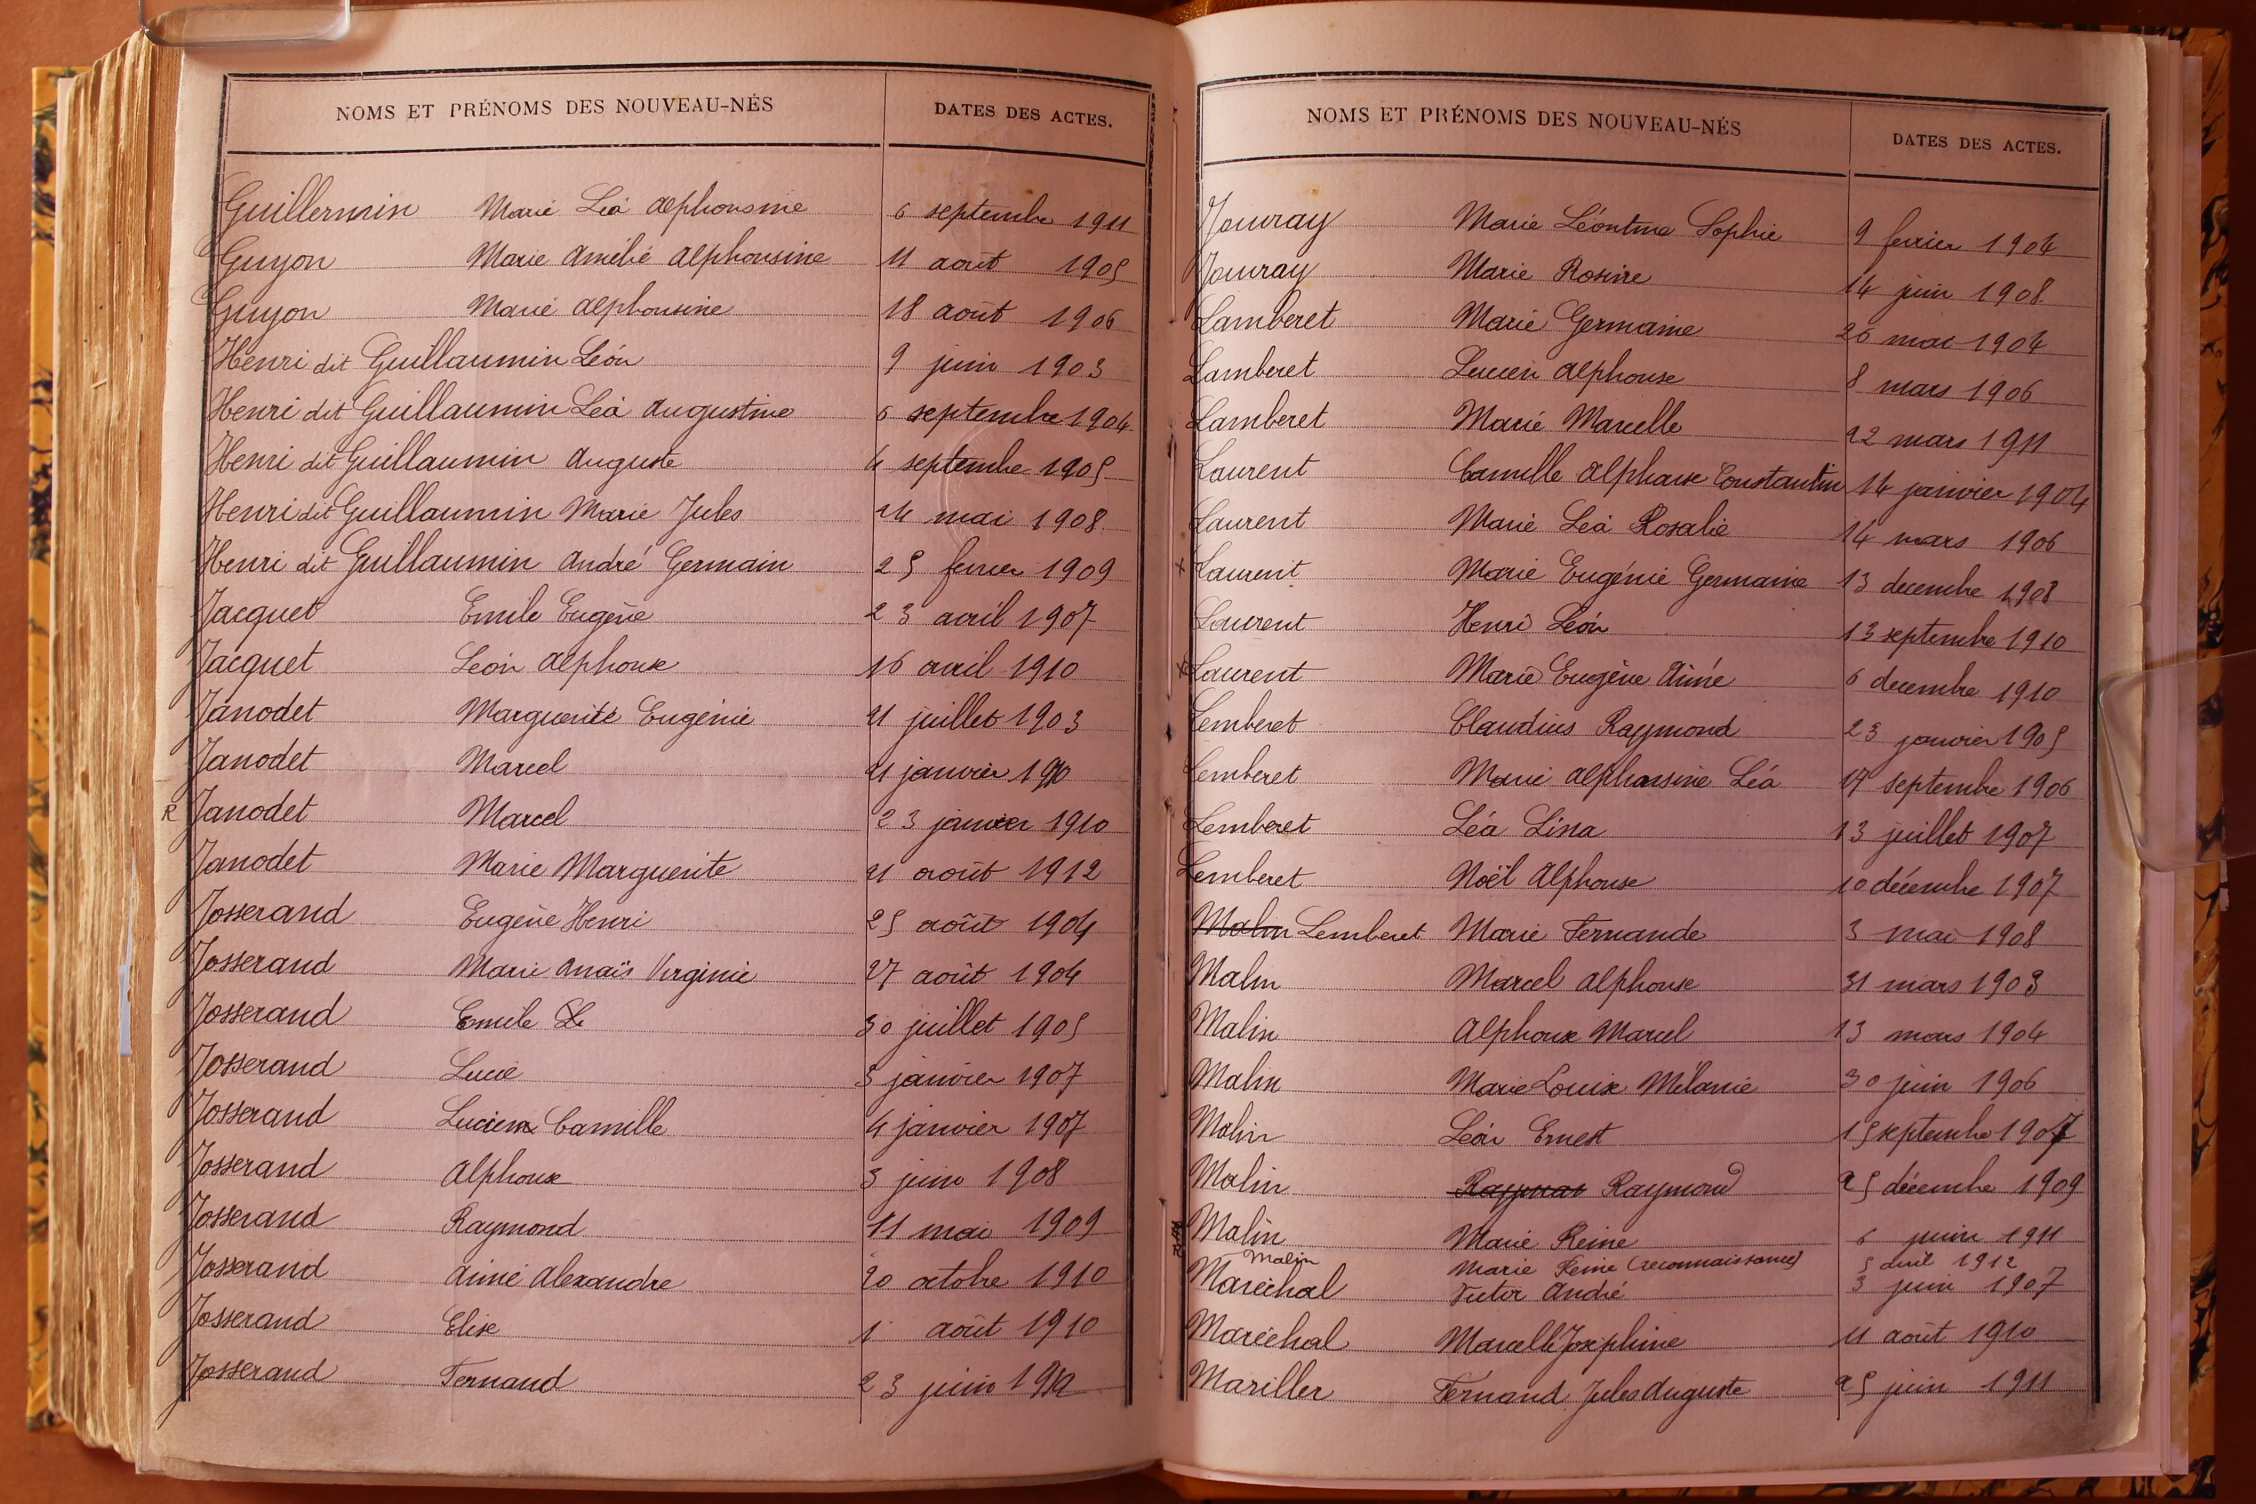 NOMS ET PRÉNOMS DES NOUVEAU-NÉS DATES DES ACTES.
Guillermin Marie Léa Alphonsine 6 septembre 1911
Guyon Marie Amélie Alphonsine 11 août 1905
Guyon Marie Alphonsine 18 août 1906
Henri dit Guillaumin Léon 9 juin 1903
Henri dit Guillaumin Léa Augustine 6 septembre 1904
Henri dit Guillaumin Auguste 4 septembre 1905
Henri dit Guillaumin Marie Jules 24 mai 1908
Henri dit Guillaumin André Germain 25 fevrier 1909
Jacquet Emile Eugène 23 avril 1907
Jacquet Léon Alphonse 16 avril 1910
Janodet Marguerite Eugénie 21 juillet 1903
Janodet Marcel 21 janvier 1910
R Janodet Marcel 23 janvier 1910
Janodet Marie Marguerite 21 août 1912
Josserand Eugène Henri 25 août 1904
Josserand Marie Anaïs Virginie 27 août 1904
Josserand Emile 30 juillet 1905
Josserand Lucie 3 janvier 1907
Josserand Lucien Camille 4 janvier 1907
Josserand Alphonse 3 juin 1908
Josserand Raymond 11 mai 1909
Josserand Aimé Alexandre 20 octobre 1910
Josserand Elise 1 août 1910
Josserand Fernand 23 juin
NOMS ET PRÉNOMS DES NOUVEAU-NÉS DATES DES ACTES.
Jouvray Marie Léontine Sophie 9 fevrier 1904
Jouvray Marie Rosine 14 juin 1908
Lamberet Marie Germaine 26 mai 1904
Lamberet Lucien Alphonse 8 mars 1906
Lamberet Marie Marcelle 22 mars 1911
Laurent Camille Alphonse Constantin 14 janvier 1904
Laurent Marie Léa Rosalie 14 mars 1906
x Laurent Marie Eugénie Germaine 13 decembre 1908
Laurent Henri Léon 13 septembre 1910
x Laurent Marie Eugène Aimé 6 decembre 1910
Lemberet Claudius Raymond 23 janvier 1905
Lemberet Marie Alphonsine Léa 17 septembre 1906
Lemberet Léa Lina 13 juillet 1907
Lemberet Noël Alphonse 10 décembre 1907
Malin Lemberet Marie Fernande 3 mai 1908
Malin Marcel Alphonse 31 mars 1903
Malin Alphonse Marcel 13 mars 1904
Malin Marie Louise Mélanie 30 juin 1906
Malin Léon Ernest 15 septembre 1907
Malin Raymond 25 décembre 1909
Malin Marie Reine 6 juin 1911
Malin Marie Reine (reconnaissance) 5 avril 1912
Maréchal Victor André 3 juin 1907
Maréchal Marcelle Joséphine 11 août 1910
Mariller Fernand Jules Auguste 25 juin 1911